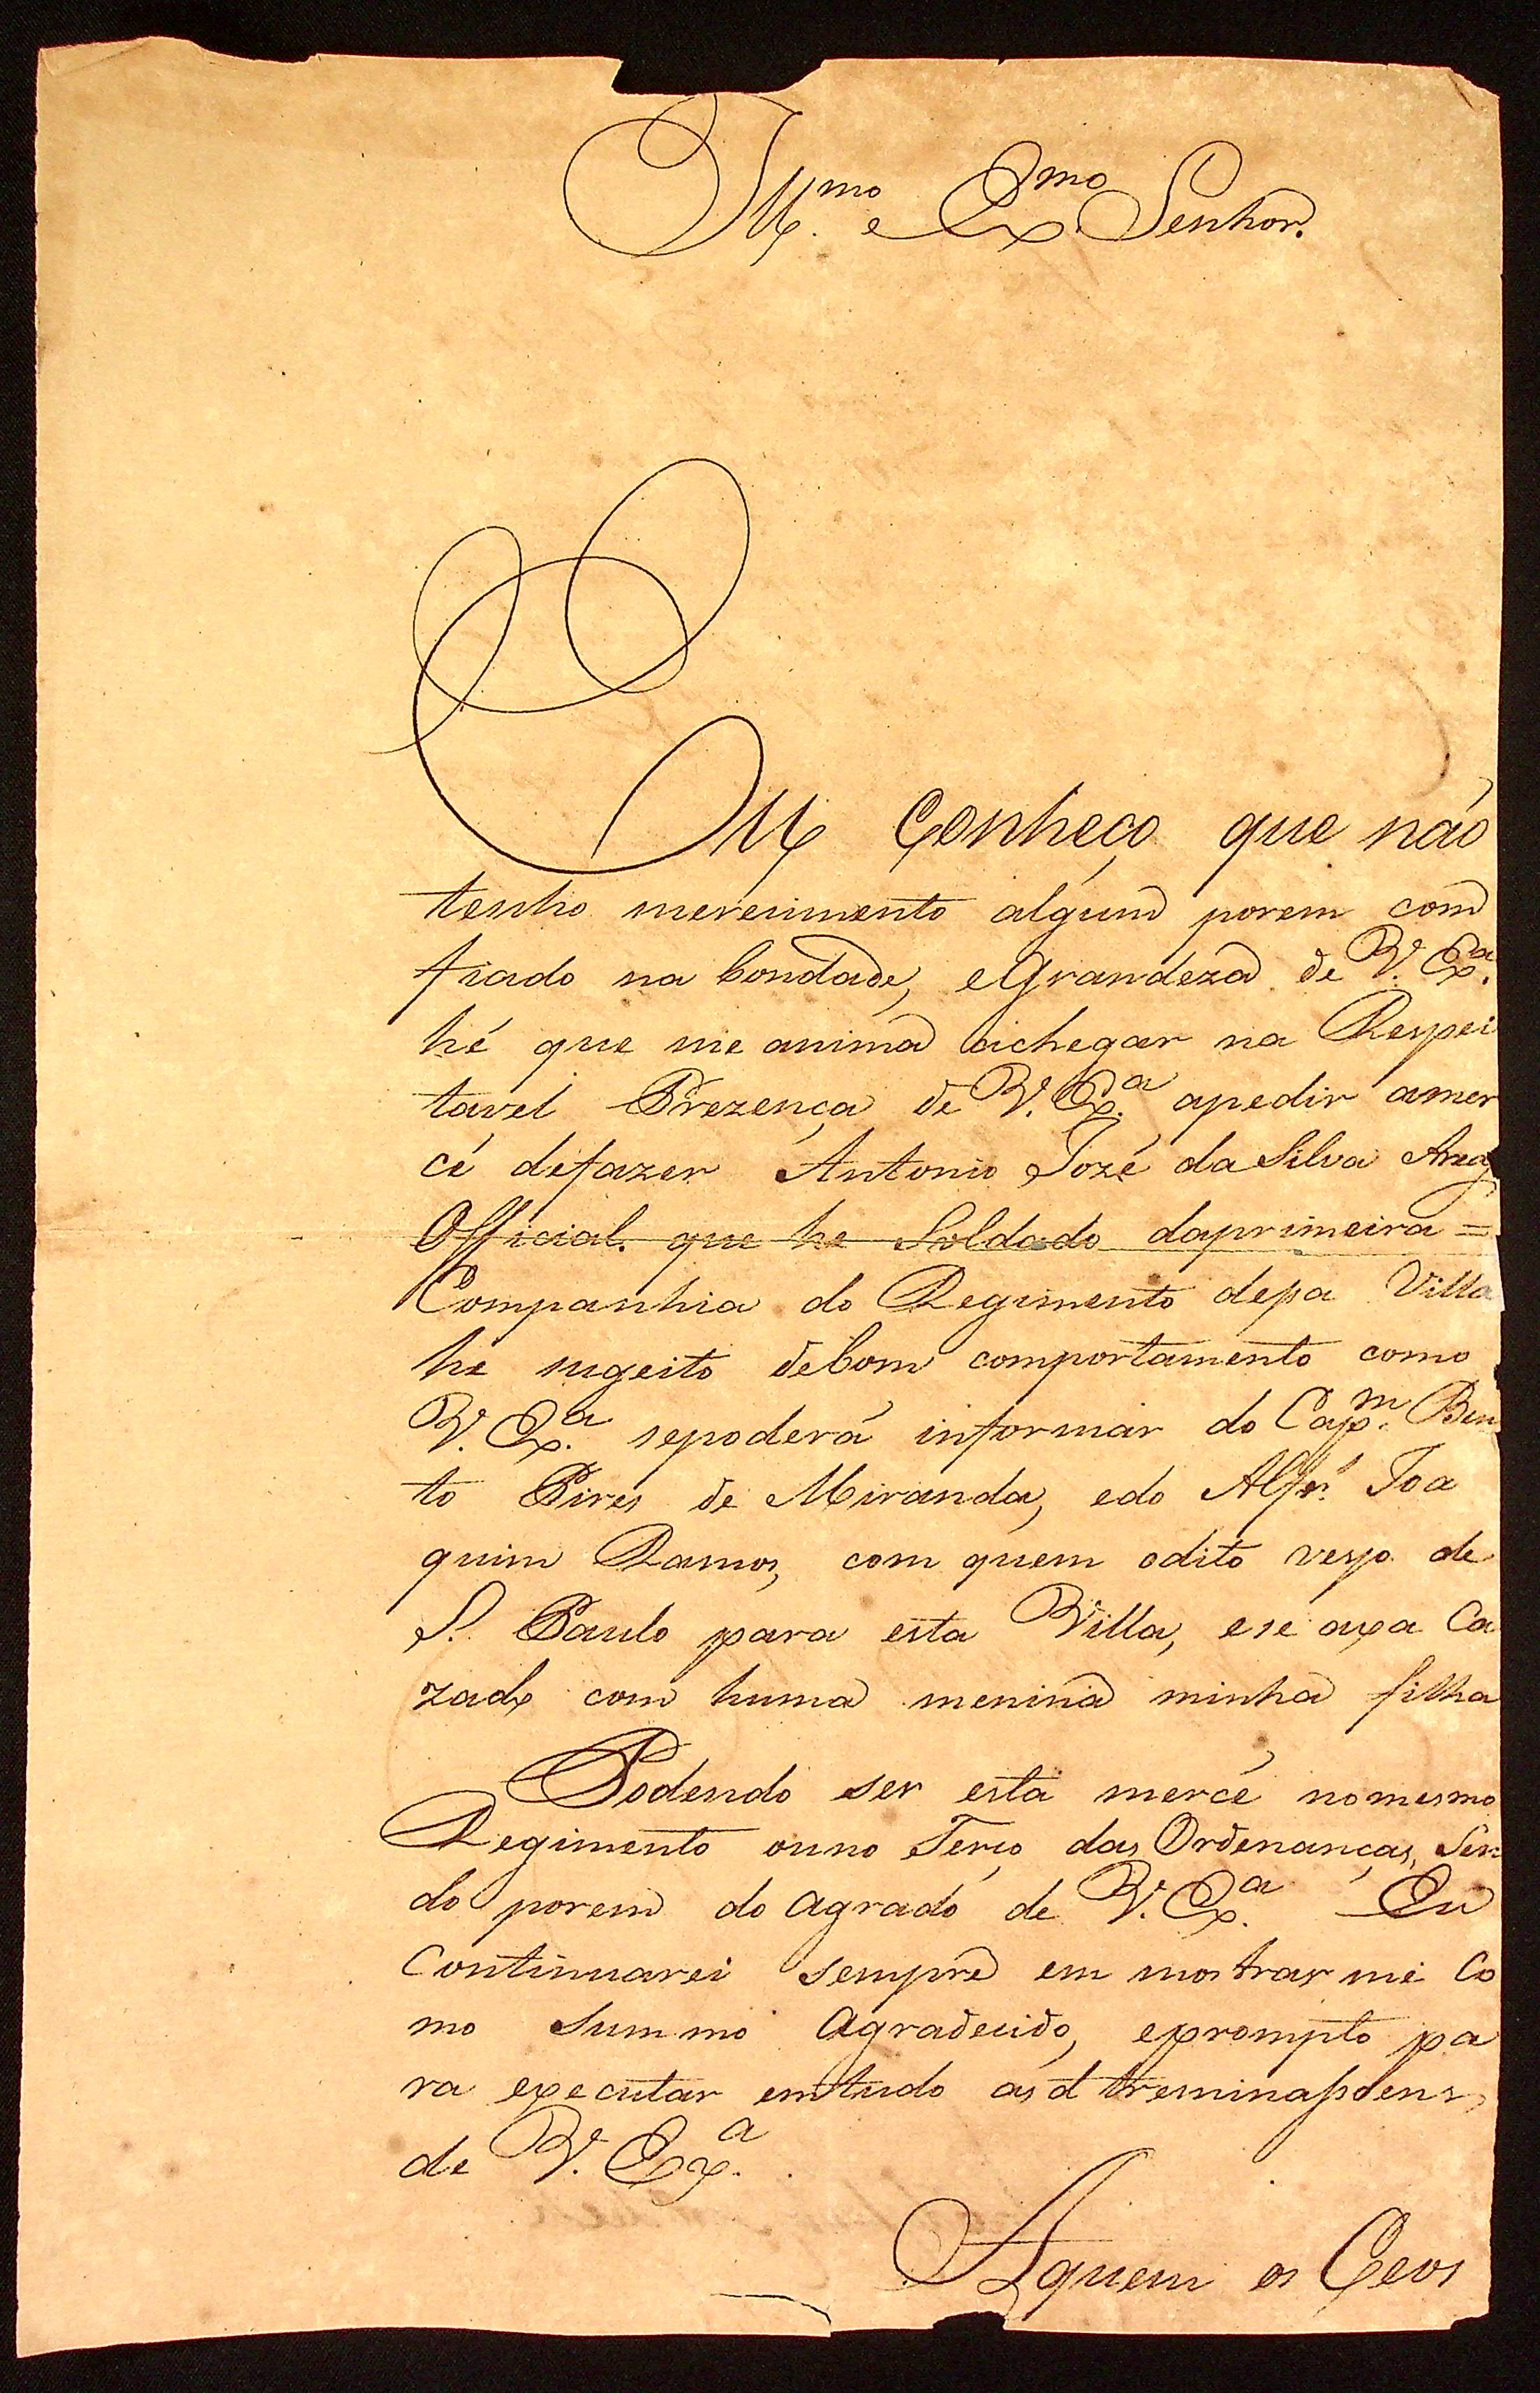 Ill.mo e Ex.mo Senhor.
Eu Conheço que não
tenho merecimento algum porem com
fiado na bondade, eGrandeza de V. Ex.a
hé que me anima achegar na Respei
tavel Prezença de V. Ex.a apedir amer
cé defazer Antonio Jozé daSilva
Official. que he Soldado daprimeira =
Companhia do Regimento desa Villa
he sugeito debom comportamento como
V. Ex.a sepoderá informar do Cap.m Ben
to Pires de Miranda, edo Alfr.s Joa
quim Ramos, com quem odito veyo de
S. Paulo para esta Villa, ese axa Ca
zado com huma menina minha filha
Podendo ser esta mercé nomesmo
Regimento ouno Terço das Ordenanças, Sen
do porem do agrado de V. Ex.a Eu
Continuarei sempre em mostrar me Co
mo Summo Agradecido, eprompto pa
ra executar emtudo as dtreminasoens
de V. Ex.a
Aquem os Ceos